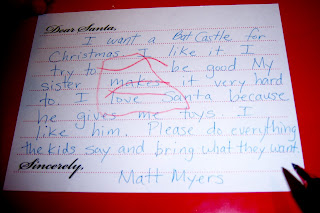 Dear Santa,
I want a Bat Castle for
Christmas. I like it. I
try to be good My
sister makes it very hard
to. I love Santa because
he gives me toys. I
like him. Please do everything
the kids say and bring what they want.
Sincerely,
Matt Myers